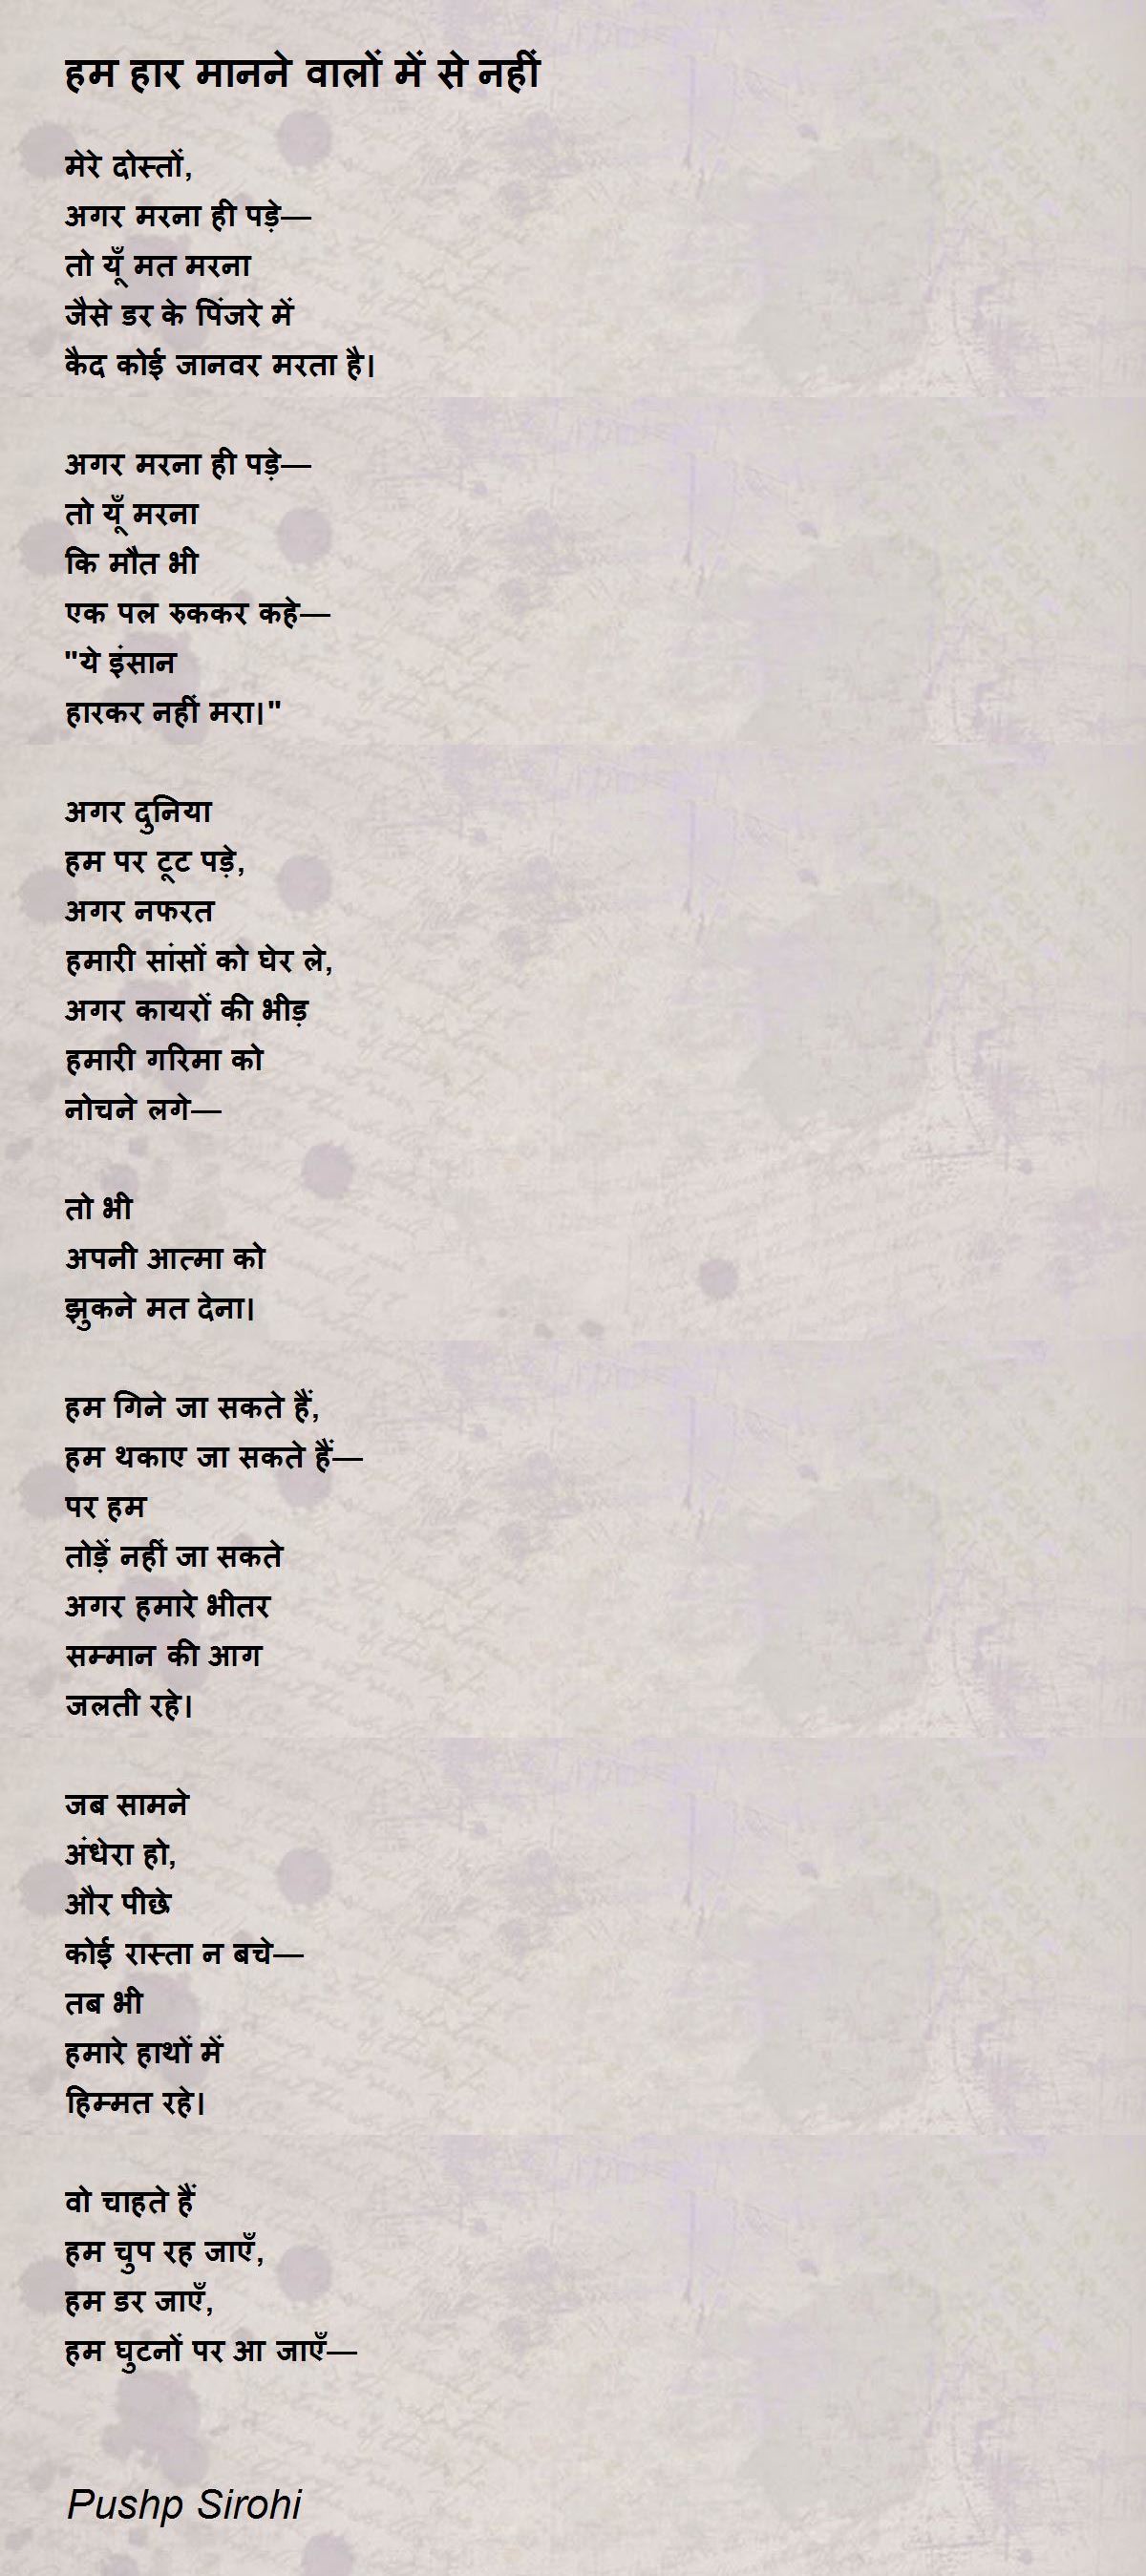 हम हार मानने वालों में से नहीं
मेरे दोस्तों,
अगर मरना ही पड़े—
तो यूँ मत मरना
जैसे डर के पिंजरे में
कैद कोई जानवर मरता है।
अगर मरना ही पड़े—
तो यूँ मरना
कि मौत भी
एक पल रुककर कहे—
"ये इंसान
हारकर नहीं मरा।"
अगर दुनिया
हम पर टूट पड़े,
अगर नफरत
हमारी सांसों को घेर ले,
अगर कायरों की भीड़
हमारी गरिमा को
नोचने लगे—
तो भी
अपनी आत्मा को
झुकने मत देना।
हम गिने जा सकते हैं,
हम थकाए जा सकते हैं—
पर हम
तोड़ें नहीं जा सकते
अगर हमारे भीतर
सम्मान की आग
जलती रहे।
जब सामने
अंधेरा हो,
और पीछे
कोई रास्ता न बचे—
तब भी
हमारे हाथों में
हिम्मत रहे।
वो चाहते हैं
हम चुप रह जाएँ,
हम डर जाएँ,
हम घुटनों पर आ जाएँ—
Pushp Sirohi